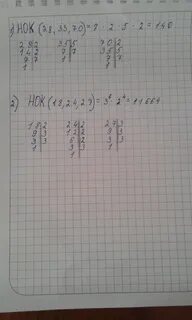 1) НОК (28, 35, 70) = 7 · 2 · 5 · 2 = 140
28|2 35|5 70|2
14|2 7|7 35|5
7|7 1| 7|7
1| 1|
2) НОК (18, 24, 27) =
18|2 24|2 27|3
9|3 12|2 9|3
3|3 6|2 3|3
1| 3|3 1|
1|